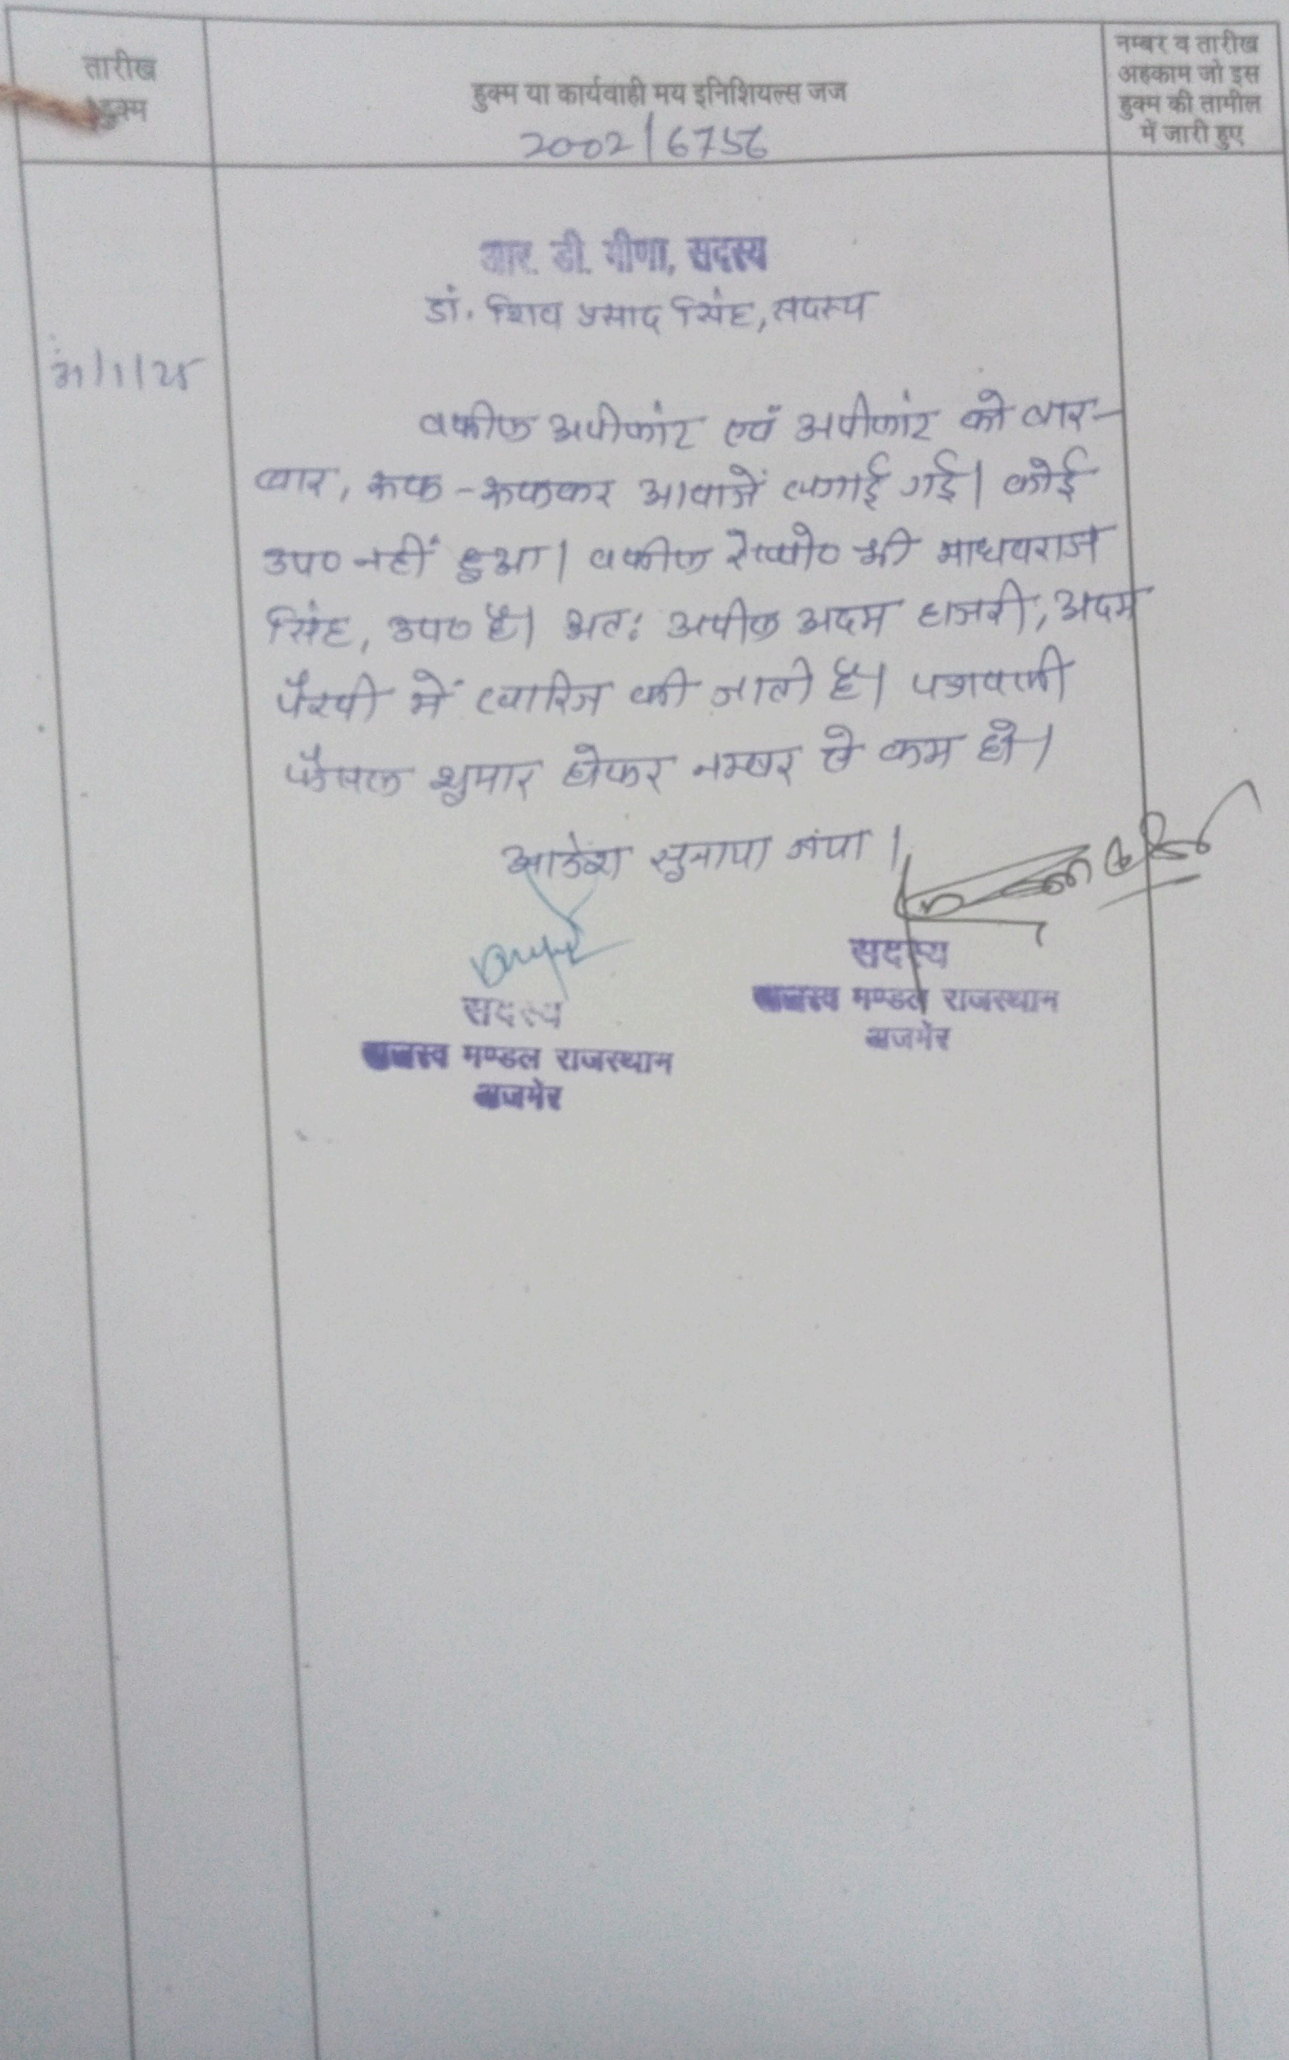 तारीख
हुक्म
हुक्म या कार्यवाही मय इनिशियल्स जज
नम्बर व तारीख
अहकाम जो इस
हुक्म की तामील
में जारी हुए
2002/6756
आर. डी. मीणा, सदस्य
डॉ. शिव प्रसाद सिंह, सदस्य
31/1/25
वकील अपीलांट एवं अपीलांट को बार-
बार, रूक-रूककर आवाजें लगाई गई। कोई
उप० नहीं हुआ। वकील रेस्पो० श्री माधवराज
सिंह, उप० है। अतः अपील अदम हाजरी, अदम
पैरवी में खारिज की जाती है। पत्रावली
फैसल शुमार होकर नम्बर से कम हो।
आदेश सुनाया गया।
सदस्य
राजस्व मण्डल राजस्थान
अजमेर
सदस्य
राजस्व मण्डल राजस्थान
अजमेर